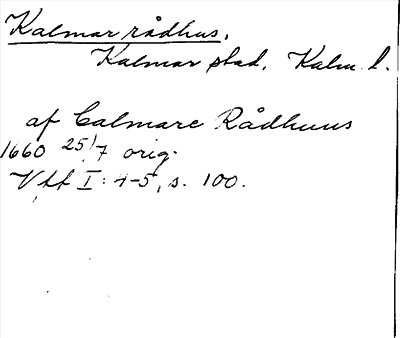 Kalmar rådhus.
Kalmar stad. Kalm. l.
af Calmare Rådhuus
1660 25/7 orig.
Vtf I: 4-5, s. 100.